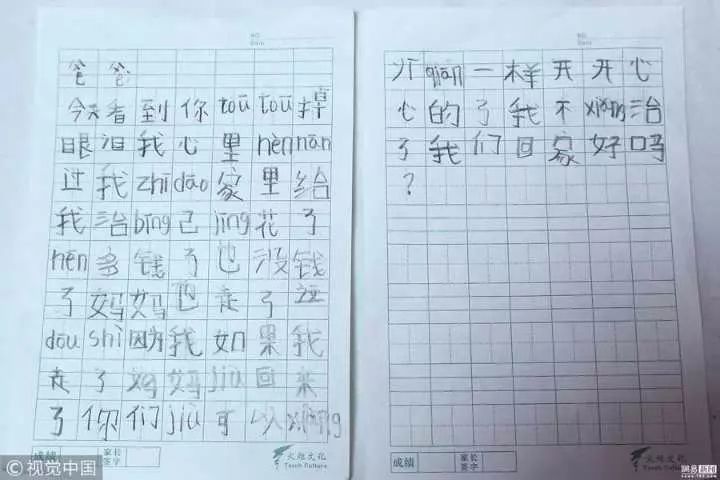 爸爸
今天看到你toutou掉
眼泪我心里hènnān
过我zhīdāo家里给
我治bìng己jīng花了
hēn多钱了也没钱
了妈妈也走了这
dōu shì因为我如果我
走了妈妈jiù回来
了你们jiù可以xiàng
以qián一样开开心
心的了我不xiǎng治
了我们回家好吗
?
NO.
Date
NO.
Date
成绩
家长
签字
火炬文化
Torch Culture
成绩
家长
签字
火炬文化
Torch Culture
©视觉中国
网易新闻